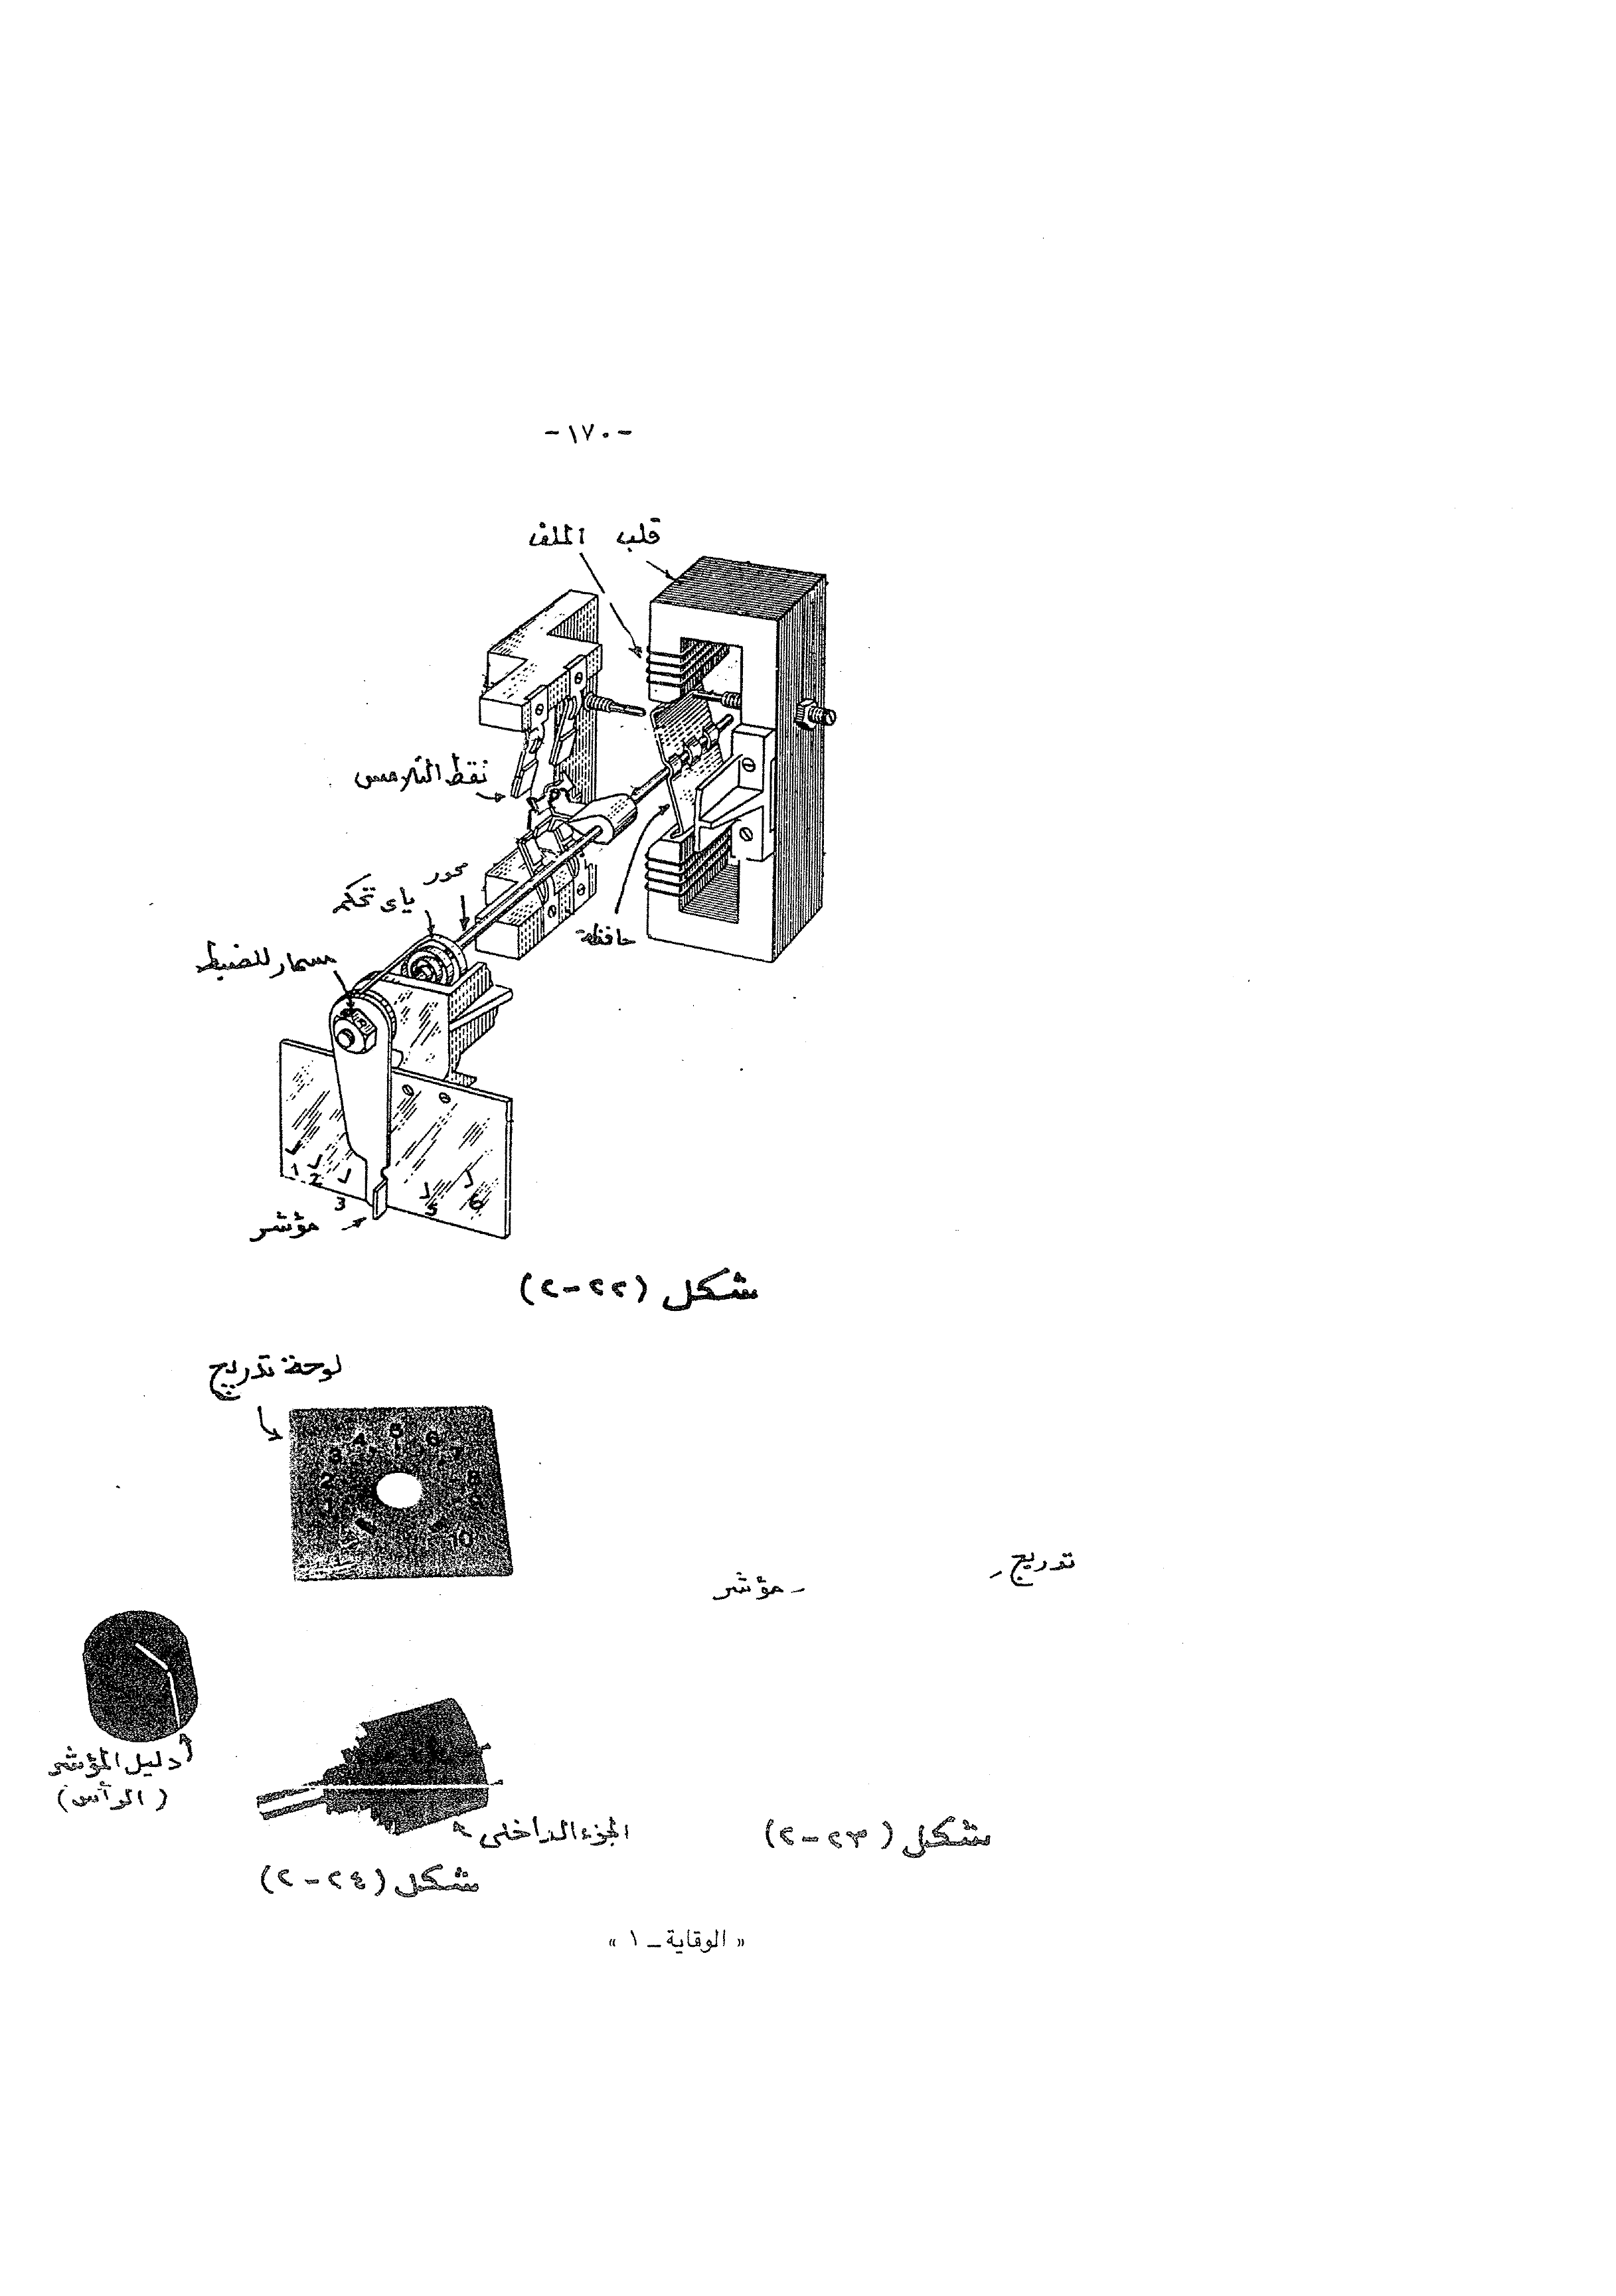 -١٧٠-
قلب الملف
نقط التلامس
محور
ياى تحكم
حافظة
مسمار للضبط
1 2 3 5 6
مؤشر
شكل (٢٢-٢)
لوحة تدريج
1 2 3 4 5 6 7 8 9 10
تدريج
مؤشر
دليل المؤشر
(الرأس)
الجزء الداخلى
شكل (٢٣-٢)
شكل (٢٤-٢)
« الوقاية ـ ١ »